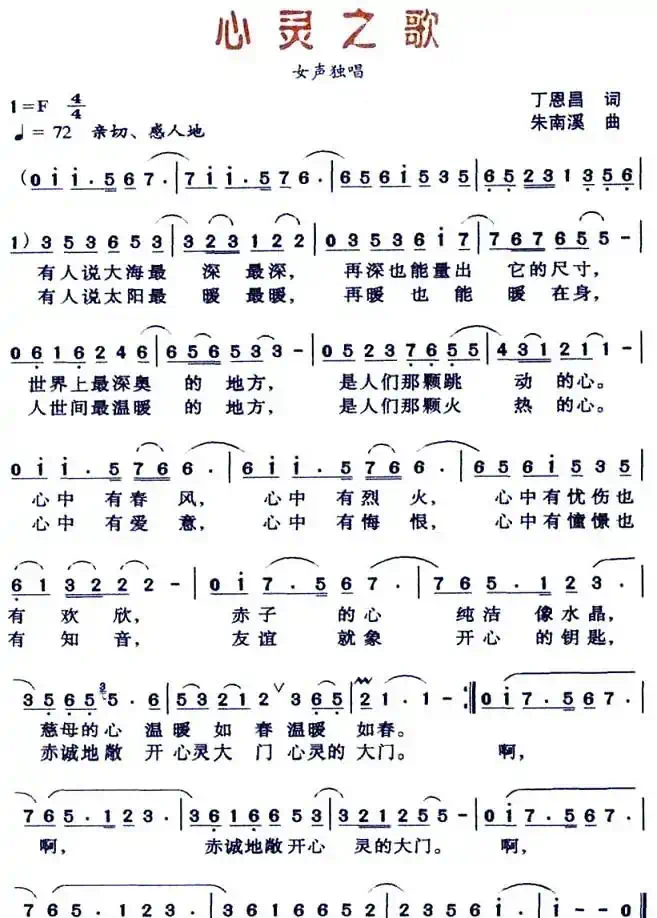 心灵之歌
女声独唱
1=F 4/4
丁恩昌 词
♩= 72 亲切、感人地
朱南溪 曲
(0 i i . 5 6 7 . | 7 i i . 5 7 6 . | 6 5 6 i 5 3 5 | 6 5 2 3 1 3 5 6
1) 3 5 3 6 5 3 | 3 2 3 1 2 2 | 0 3 5 3 6 i 7 | 7 6 7 6 5 5 - |
有人说大海最 深 最深， 再深也能量出 它的尺寸，
有人说太阳最 暖 最暖， 再暖 也 能 暖 在身，
0 6 1 6 2 4 6 | 6 5 6 5 3 3 - | 0 5 2 3 7 6 5 5 | 4 3 1 2 1 1 - |
世界上最深奥 的 地方， 是人们那颗跳 动 的心。
人世间最温暖 的 地方， 是人们那颗火 热 的心。
0 i i . 5 7 6 6 . | 6 i i . 5 7 6 6 . | 6 5 6 i 5 3 5 |
心中 有春 风， 心中 有烈 火， 心中有忧伤也
心中 有爱 意， 心中 有悔 恨， 心中有憧憬也
6 1 3 2 2 2 - | 0 i 7 . 5 6 7 . | 7 6 5 . 1 2 3 . |
有 欢欣， 赤子 的心 纯洁 像水晶，
有 知音， 友谊 就象 开心 的钥匙，
3 5 6 5 3 5 . 6 | 5 3 2 1 2 ∨ 3 6 5 | 2 1 . 1 - :‖ 0 i 7 . 5 6 7 . |
慈母的心 温暖 如 春温暖 如春。
赤诚地敞 开 心灵大 门 心灵的 大门。 啊，
7 6 5 . 1 2 3 . | 3 6 1 6 6 5 3 | 3 2 1 2 5 5 - | 0 i 7 . 5 6 7 . |
啊， 赤诚地敞开心 灵的大门。 啊，
7 6 5 . 1 2 3 . | 3 6 1 6 6 5 2 | 2 3 5 6 i . | i - - 0 |